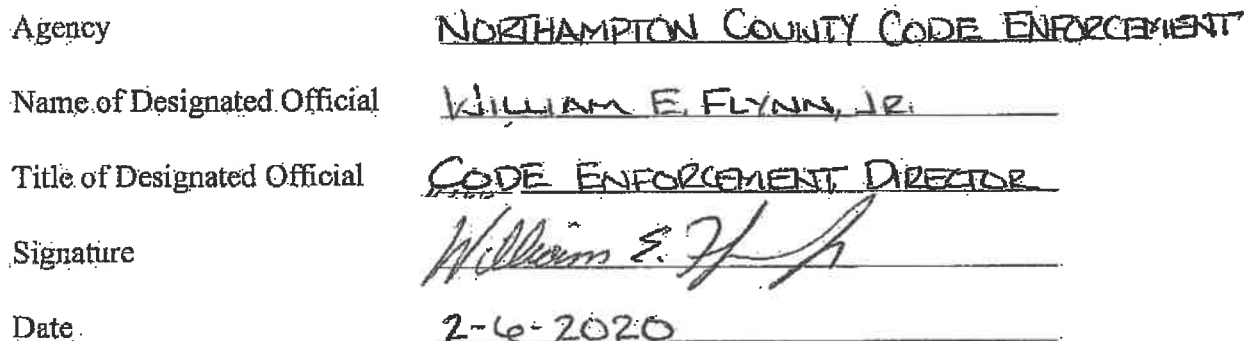 Agency NORTHAMPTON COUNTY CODE ENFORCEMENT
Name of Designated Official WILLIAM E. FLYNN, JR.
Title of Designated Official CODE ENFORCEMENT DIRECTOR
Signature William E. Flynn Jr
Date 2-6-2020